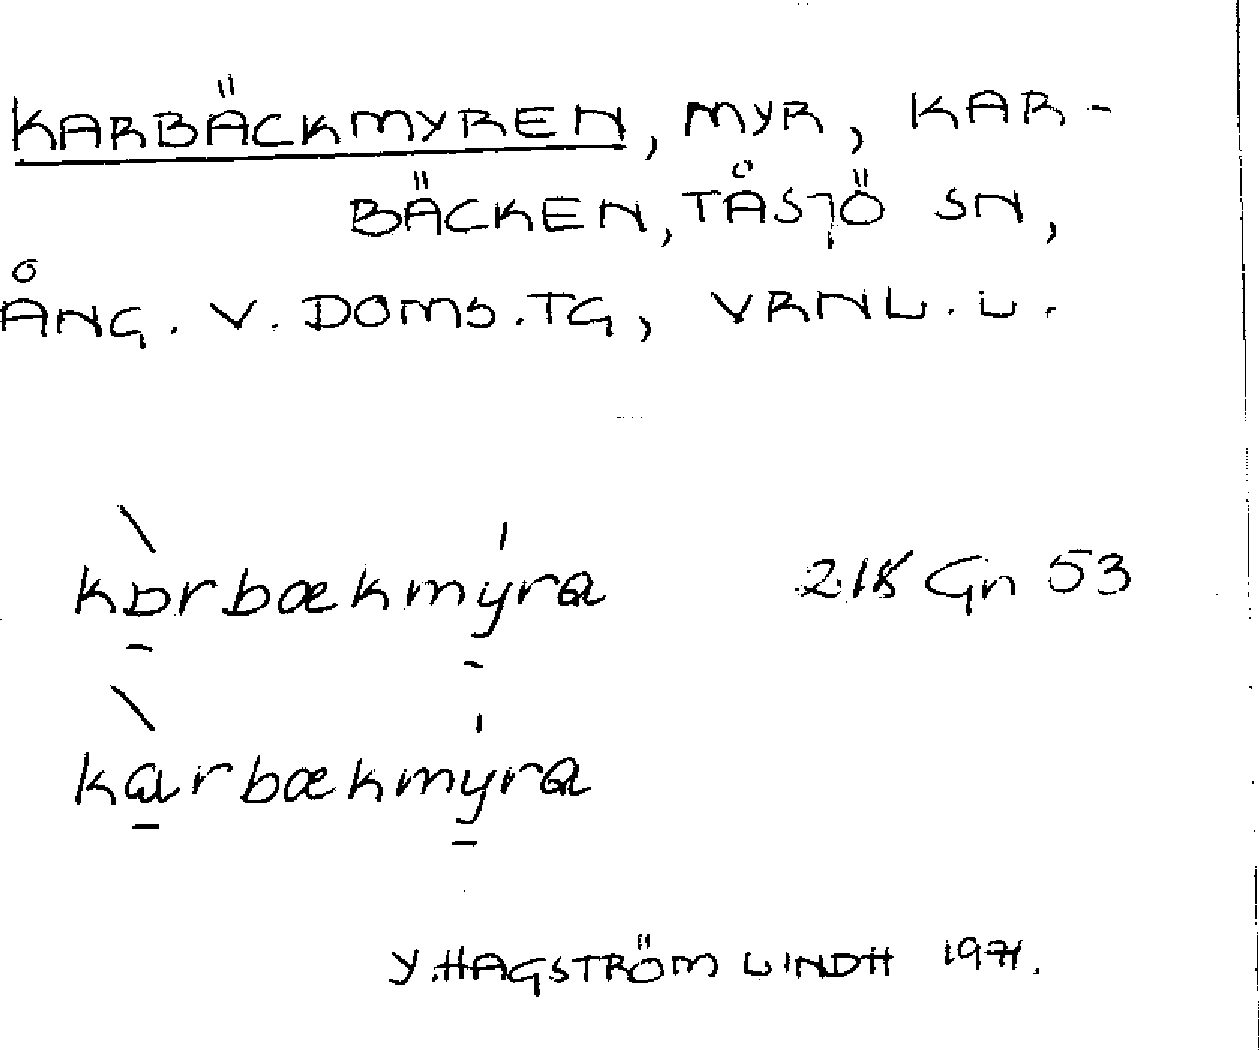 KARBÄCKMYREN, MYR, KAR-
BÄCKEN, TÅSJÖ SN,
ÅNG. V. DOMS. TG, VRNL. L.
kɒrbækmyra Gn 53
karbækmyra
Y. HAGSTRÖM LINDH 1971.